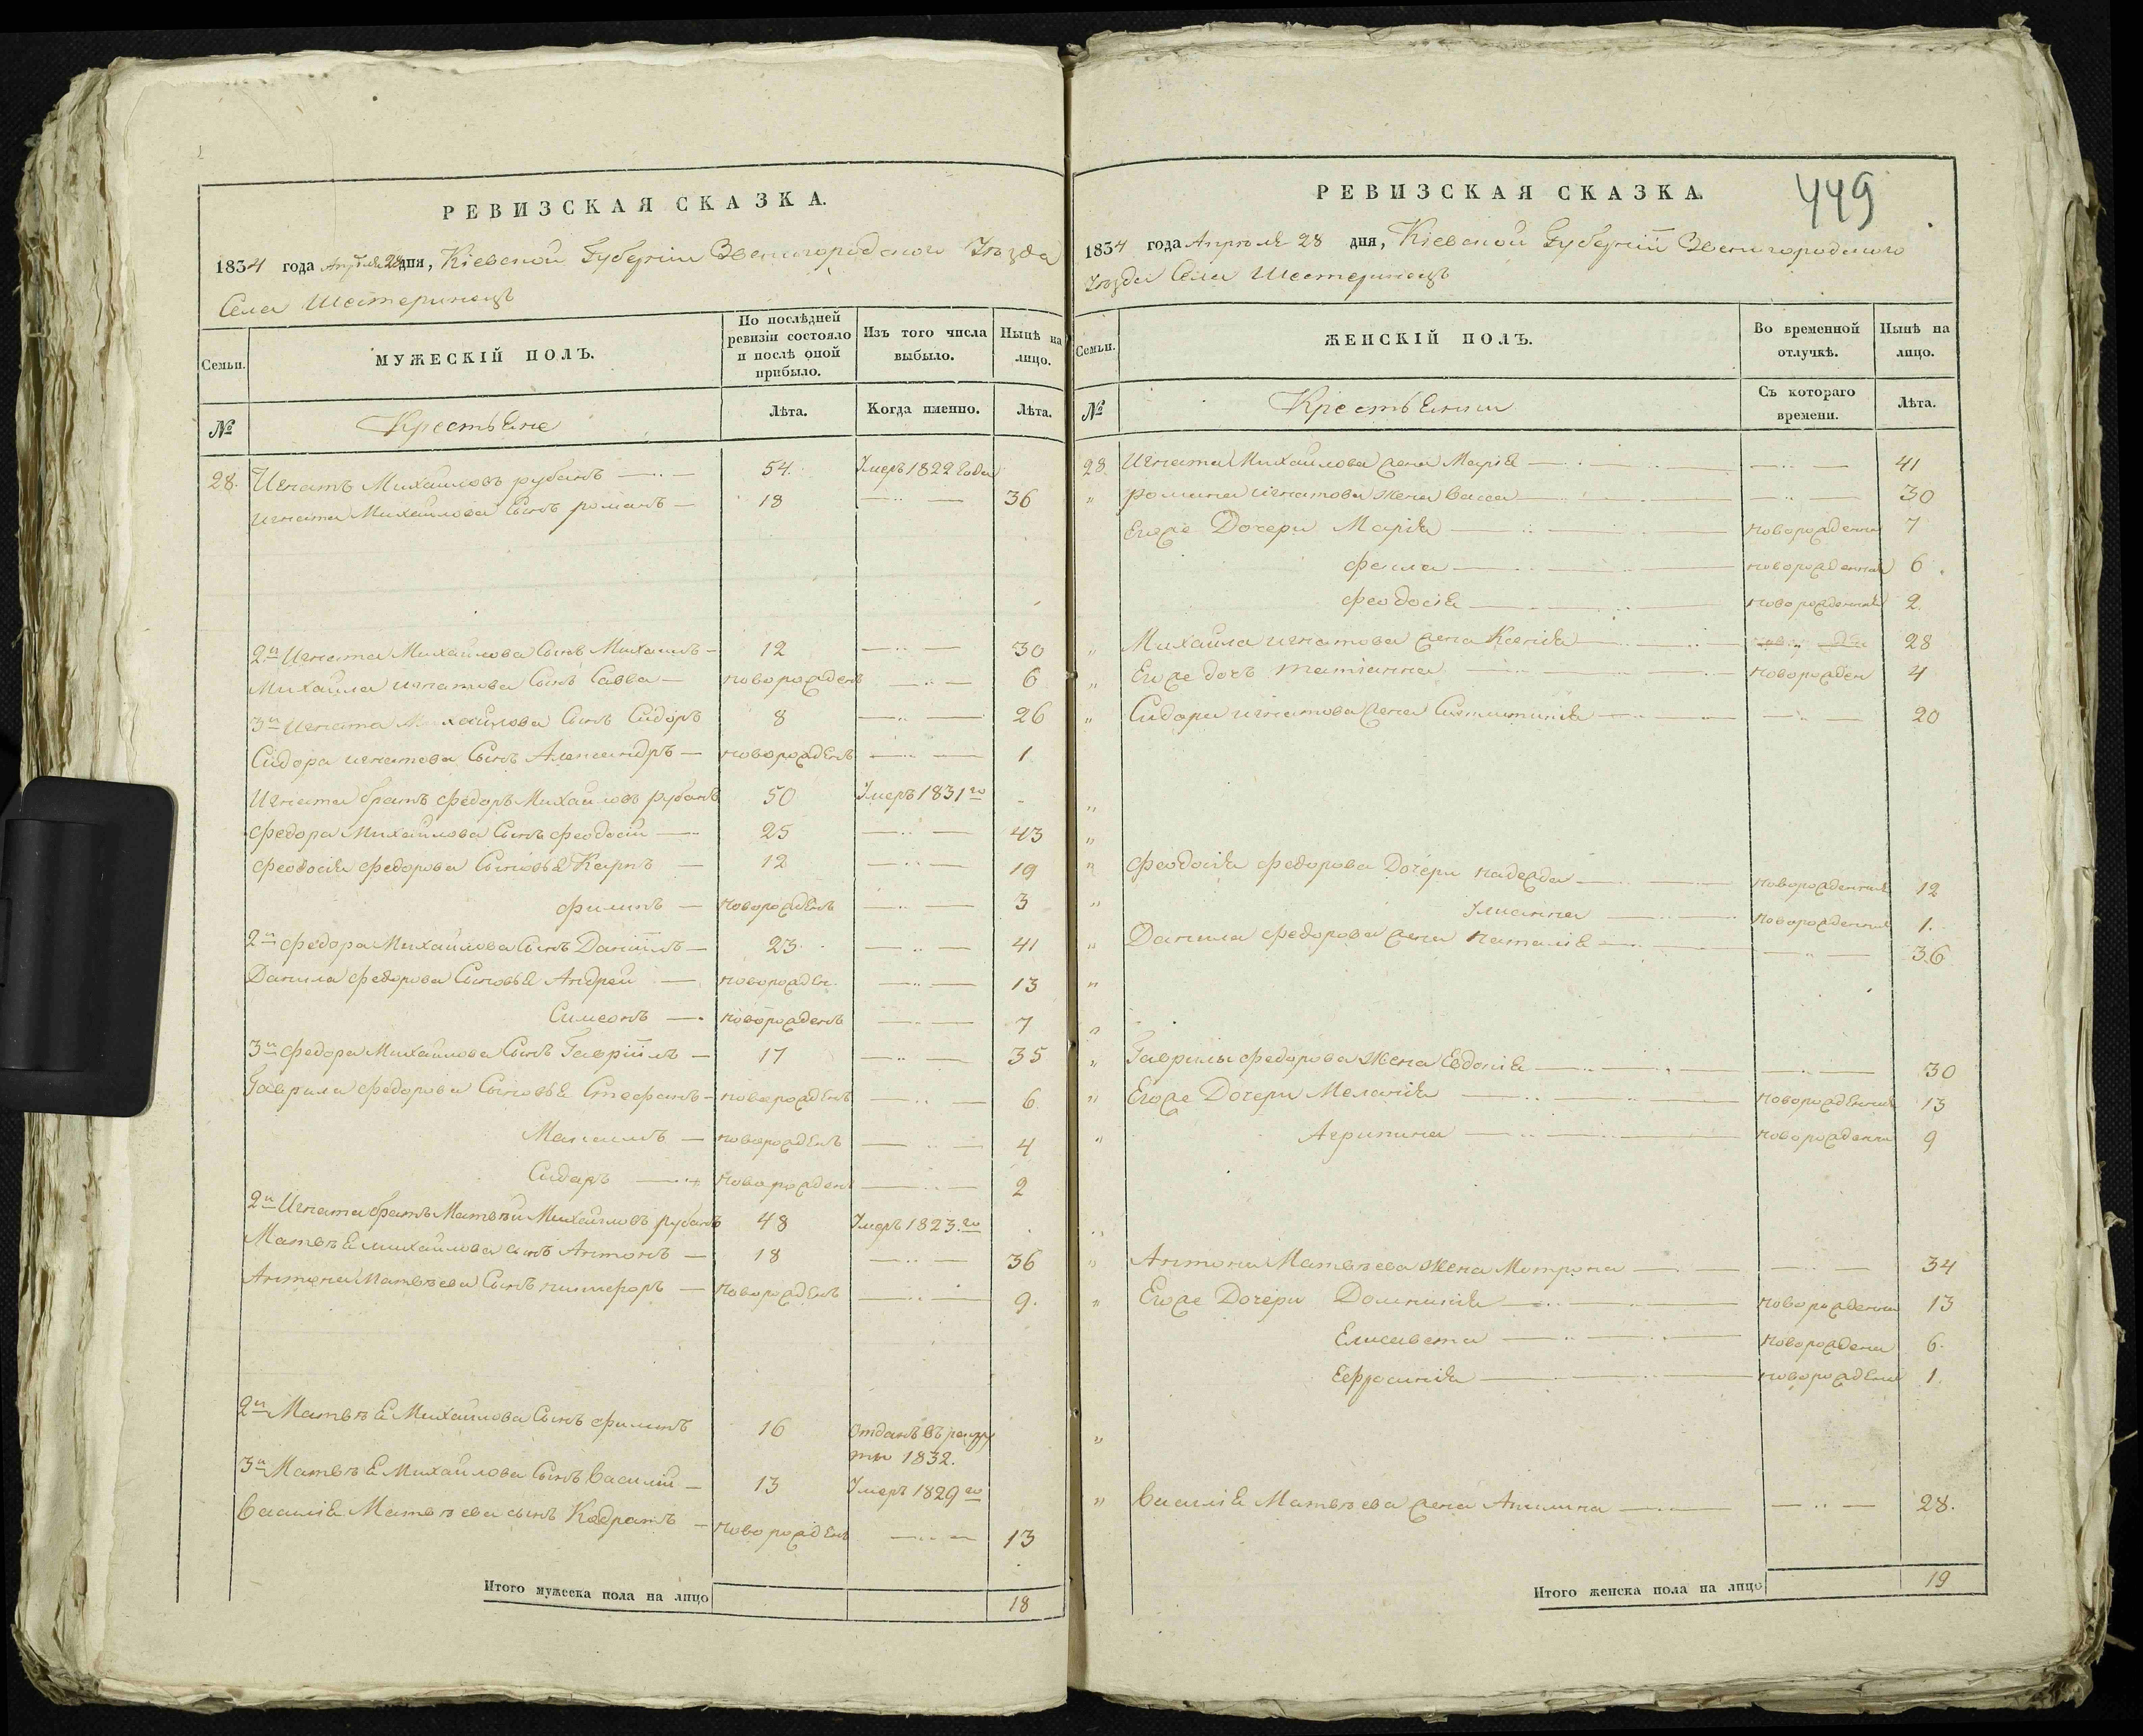 РЕВИЗСКАЯ СКАЗКА.
1834 года Апреля 28 дня, Кіевской Губерніи Звенигородскаго Уѣзда
Села Шестеринецъ
Семьи. МУЖЕСКІЙ ПОЛЪ. По послѣдней ревизіи состояло и послѣ оной прибыло. Изъ того числа выбыло. Нынѣ на лицо.
№ Крестьяне Лѣта. Когда именно. Лѣта.
28. Игнатъ Михайловъ рубанъ — 54. Умеръ 1822 года
Игната Михайлова Сынъ романъ — 18 — " — 36
2й Игната Михайлова Сынъ Михаилъ — 12 — " — 30
Михайла игнатова Сынъ Савва — новорожденъ — " — 6
3й Игната Михайлова Сынъ Сидоръ 8 — " — 26
Сидора игнатова Сынъ Александръ — новорожденъ — " — 1
Игната братъ федоръ Михайловъ рубанъ 50 Умеръ 1831го -
федора Михайлова Сынъ феодосій — 25 — " — 43
феодосія федорова Сыновья Карпъ — 12 — " — 19
филипъ — новорожденъ — " — 3
2й федора Михайлова Сынъ Даніилъ — 23. — " — 41
Данила федорова Сыновья Андрей — новорожден. — " — 13
Симеонъ — новорожденъ — " — 7
3й федора Михайлова Сынъ Гавріилъ — 17 — " — 35
Гаврила федорова Сыновья Стефанъ — новорожденъ — " — 6.
Максимъ — новорожденъ — " — 4
Сидоръ — новорожденъ — " — 2
2й Игната братъ Матвѣй Михайловъ рубанъ 48 Умеръ 1823.го
Матвѣя михайлова сынъ Антонъ — 18 — " — 36
Антона Матвѣева Сынъ никифоръ — новорожденъ — " — 9.
2й Матвѣя Михайлова Сынъ филипъ 16 Отданъ въ рекру
ты 1832.
3й Матвѣя Михайлова Сынъ Василій — 13 Умеръ 1829го
Василія Матвѣева сынъ Кодратъ — новорожденъ — " — 13
Итого мужеска пола на лицо 18
РЕВИЗСКАЯ СКАЗКА. 449
1834 года Апреля 28 дня, Кіевской Губерніи Звенигородскаго
Уѣзда Села Шестеринецъ
Семьи. ЖЕНСКІЙ ПОЛЪ. Во временной отлучкѣ. Нынѣ на лицо.
№ Крестьянки Съ котораго времени. Лѣта.
28. Игната Михайлова жена Марія — " — 41
" романа игнатова жена васса — " — 30
Егоже Дочери Марія — новорожденна 7
фекла — новорожденная 6.
феодосія — новорожденная 2.
" Михайла игнатова жена Ксенія — 28
" Егоже дочъ татіанна — новорожден 4
" Сидора игнатова жена — " — 20
"
"
" феодосія федорова Дочери надежда — новорожденная 12
" Уліанна — новорожденная 1.
" Данила федорова жена наталія — " — 36
"
"
" Гаврилы федорова жена Евдокія — " — 30
" Егоже Дочери Меланія — новорожденная 13
" Агрипина — новорожденна 9
"
" Антона Матвѣева жена Мотрона — " — 34
" Егоже Дочери Домникія — новорожденна 13
Елисавета — новорождена 6.
Ефросинія — новорожденя 1.
"
" Василія Матвѣева жена Акилина — " — 28.
Итого женска пола на лицо 19